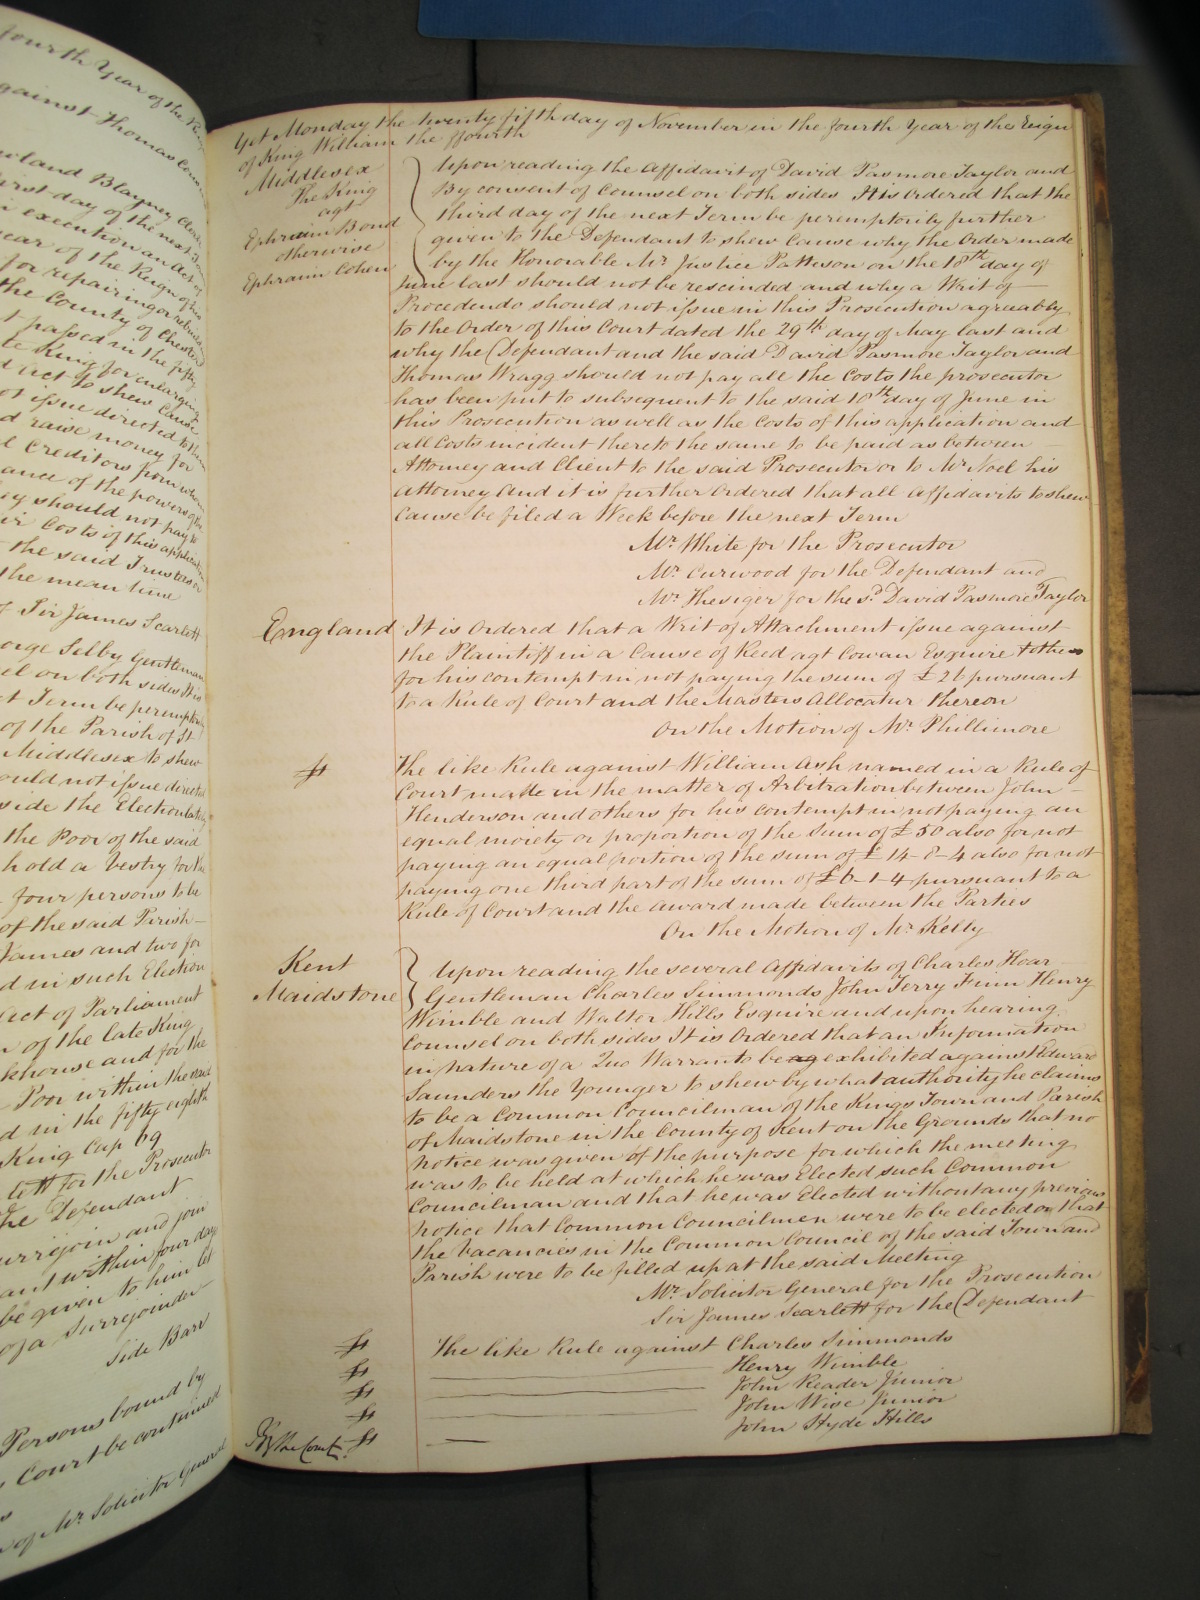 fourth Year of the
against Thomas
Rowland Blayney Clerk
first day of the next
execution an Act of
year of the Reign of his
for repairing or
the County of Chester
passed in the fifty
King for enlarging
Act to shew Cause
not issue directed to
raise money for
Creditors from whom
of the powers of the
should not pay
Costs of this application
the said Trustees
the mean time
Sir James Scarlett
George Selby Gentleman
on both sides It is
Term be peremptorily
of the Parish of St
Middlesex to shew
should not issue directed
side the Election
the Poor of the said
hold a Vestry for the
four persons to be
of the said Parish
James and two for
in such Election
Act of Parliament
of the late King
and for the
Poor within the said
in the fifty eighth
King Cap 69
for the Prosecutor
the Defendant
surrejoin and join
within four days
be given to him
of a Surrejoinder
Side Bar
Persons bound by
Court be continued
of Mr. Solicitor General
Yet Monday the twenty fifth day of November in the fourth Year of the Reign
of King William the ffourth
Middlesex
The King
agt
Ephraim Bond
otherwise
Ephraim Cohen
Upon reading the Affidavit of David Pasmore Taylor and
By consent of Counsel on both sides It is Ordered that the
third day of the next Term be peremptorily further
given to the Defendant to shew Cause why the Order made
by the Honorable Mr. Justice Patteson on the 18th day of
June last should not be rescinded and why a Writ of
Procedendo should not issue in this Prosecution agreeably
to the Order of this Court dated the 29th day of May last and
why the Defendant and the said David Pasmore Taylor and
Thomas Wragg should not pay all the Costs the prosecutor
has been put to subsequent to the said 18th day of June in
this Prosecution as well as the Costs of this application and
all Costs incident thereto the same to be paid as between
Attorney and Client to the said Prosecutor or to Mr Noel his
attorney And it is further Ordered that all Affidavits to shew
cause be filed a Week before the next Term
Mr. White for the Prosecutor
Mr. Curwood for the Defendant and
Mr. Thesiger for the sd. David Pasmore Taylor
England
It is Ordered that a Writ of Attachment issue against
the Plaintiff in a Cause of Reed agt Cowan Esquire
for his contempt in not paying the sum of £26 pursuant
to a Rule of Court and the Masters Allocatur thereon
On the Motion of Mr. Phillimore
The like Rule against William Ash named in a Rule of
Court made in the matter of Arbitration between John
Henderson and others for his contempt in not paying an
equal moiety or proportion of the sum of £50 also for not
paying an equal portion of the sum of £14-8-4 also for not
paying one third part of the sum of £6-1-4 pursuant to a
Rule of Court and the award made between the Parties
On the Motion of Mr. Kelly
Kent
Maidstone
Upon reading the several Affidavits of Charles Hoar
Gentleman Charles Simmonds John Terry Finn Henry
Wimble and Walter Hills Esquire and upon hearing
Counsel on both sides It is Ordered that an Information
in nature of a Quo Warranto be exhibited against Edward
Saunders the Younger to shew by what authority he claims
to be a Common Councilman of the Kings Town and Parish
of Maidstone in the County of Kent on the Grounds that no
Notice was given of the purpose for which the meeting
was to be held at which he was Elected such Common
Councilman and that he was Elected without any previous
notice that Common Councilmen were to be elected or that
the Vacancies in the Common Council of the said Town and
Parish were to be filled up at the said Meeting
Mr. Solicitor General for the Prosecution
Sir James Scarlett for the Defendant
The like Rule against Charles Simmonds
Henry Wimble
John Reader Junior
John Wise Junior
John Hyde Hills
By the Court